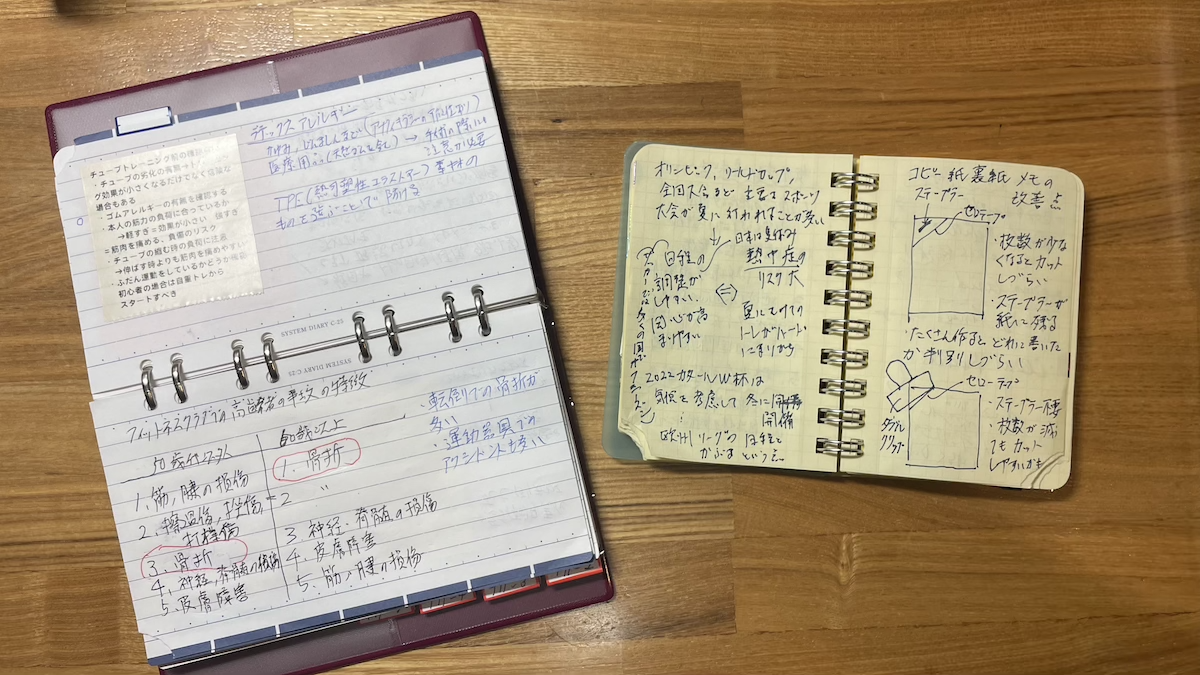 ラテックスアレルギー
かゆみ、じんましんまで(アナフィラキシーの可能性あり)
医療用 (天然ゴムを含む) → 手術の際にも
注意が必要
TPE(熱可塑性エラストマー)素材の
ものを選ぶことで防げる
チューブトレーニング前の確認
・チューブの劣化の有無→トレーニン
グ効果が小さくなるだけでなく危険な
場合もある
・ゴムアレルギーの有無を確認する
・本人の筋力の負荷に合っているか
→軽すぎ=効果が小さい 強すぎ
=筋肉を痛める、負傷のリスク
・チューブの縮む時の負荷に注意
→伸ばす時よりも筋肉を痛めやすい
・ふだん運動をしているかどうか確認
初心者の場合は自重トレから
スタートすべき
SYSTEM DIARY C-25
SYSTEM DIARY C-25
フィットネスクラブでの高齢者の事故の特徴
50歳代以下
1. 筋、腱の損傷
2. 擦過傷、挫傷、
打撲傷
3. 骨折
4. 神経、脊髄の損傷
5. 皮膚障害
60歳以上
1. 骨折
2 〃
3 神経・脊髄の損傷
4. 皮膚障害
5. 筋、腱の損傷
・転倒での骨折が
多い
・運動器具での
アクシデントも多い
オリンピック、ワールドカップ、
全国大会など 主要なスポーツ
大会が夏に行われることが多い
日本は夏休み
日程の
調整が
しやすい、
関心が高
まりやすい
熱中症の
リスク大
夏にむけての
トレがハードに
2022カタールW杯は
気候を考慮して冬に
開催
欧州リーグの日程と
かぶるという点
コピー紙裏紙メモの
改善点
ステープラー
セロテープ
・枚数が少な
くなるとカット
しづらい
・ステープラーが
紙に残る
・たくさん作ると どれに書いた
か判別しづらい
セロテープ
ダブル
クリップ
・ステープラー不要
・枚数が減っ
てもカット
しやすいかも